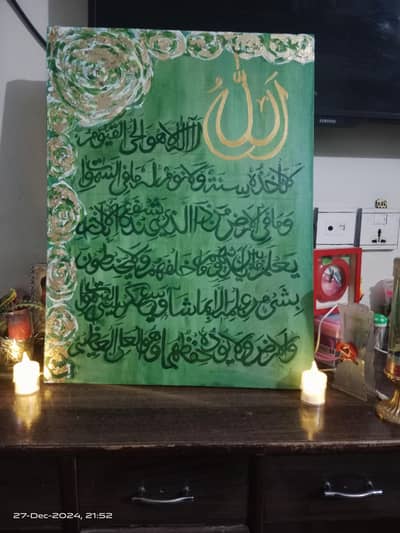 الله
لا اله الا هو الحي القيوم
لا تاخذه سنة ولا نوم له ما في السموا
وما في الارض من ذا الذي يشفع عنده الا باذنه
يعلم ما بين ايديهم وما خلفهم ولا يحيطون
بشئ من علمه الا بما شاء وسع كرسيه
والارض ولا يؤده حفظهما وهو العلي العظيم
27-Dec-2024, 21:52